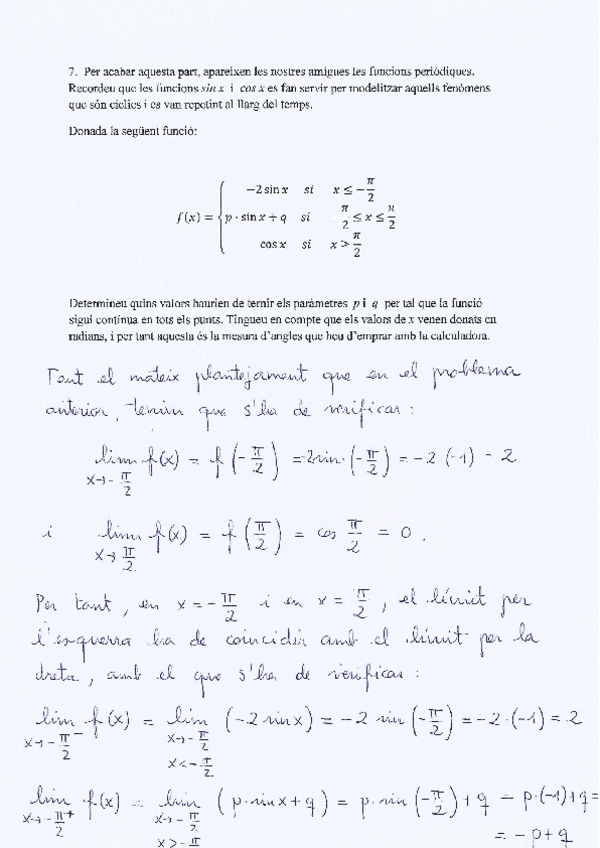 7. Per acabar aquesta part, apareixen les nostres amigues les funcions periòdiques.
Recordeu que les funcions sin x i cos x es fan servir per modelitzar aquells fenòmens
que són cíclics i es van repetint al llarg del temps.
Donada la següent funció:
−2 sin x si x ≤ −π/2
f(x) = { p · sin x + q si π/2 ≤ x ≤ π/2
cos x si x > π/2
Determineu quins valors haurien de ternir els paràmetres p i q per tal que la funció
sigui contínua en tots els punts. Tingueu en compte que els valors de x venen donats en
radians, i per tant aquesta és la mesura d'angles que heu d'emprar amb la calculadora.
Tant el mateix plantejament que en el problema
anterior, tenim que s'ha de verificar:
lim x→-π/2 f(x) = f(-π/2) = -2sin·(-π/2) = -2(-1) = 2
i lim x→π/2 f(x) = f(π/2) = cos π/2 = 0.
Per tant, en x = -π/2 i en x = π/2, el límit per
l'esquerra ha de coincidir amb el límit per la
dreta, amb el que s'ha de verificar:
lim x→-π/2⁻ f(x) = lim x→-π/2 x<-π/2 (-2 sin x) = -2 sin(-π/2) = -2·(-1) = 2
lim x→-π/2⁺ f(x) = lim x→-π/2 x>-π/2 (p·sin x + q) = p·sin(-π/2) + q = p·(-1)+q =
= -p+q